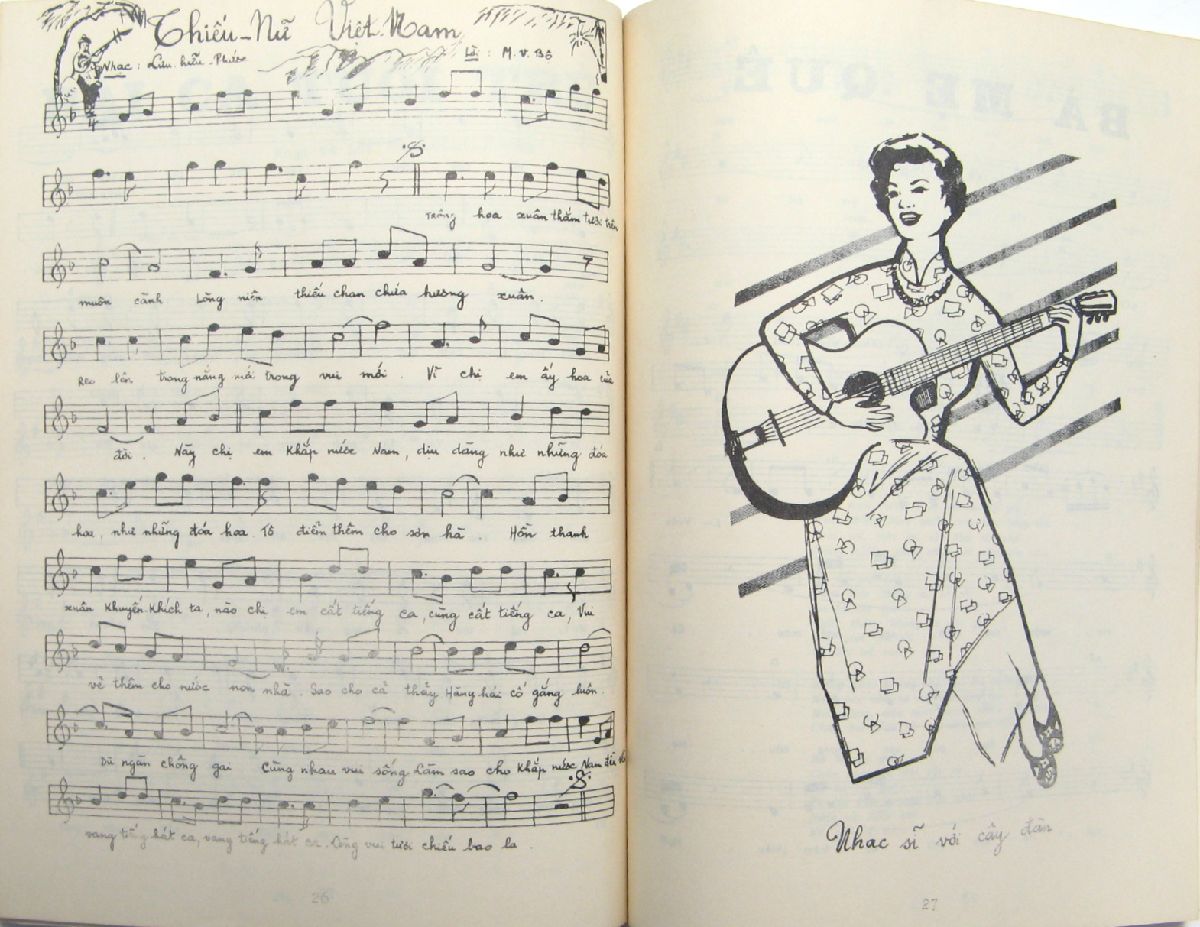 Thiếu-Nữ Việt-Nam
Nhạc: Lưu-hữu-Phước Lời: M.V.Bộ
hoa xuân thắm tươi trên
muôn cành Lòng niên thiếu chan chứa hương xuân.
Reo lên trong nắng mới trong vui mới. Vì chị em ấy hoa của
đời. Nầy chị em Khắp nước Nam, dịu dàng như những đóa
hoa, như những đóa hoa. Tô điểm thêm cho sơn hà. Hồn thanh
xuân Khuyến Khích ta, nào chị em cất tiếng ca, cùng cất tiếng ca, Vui
vẽ thêm cho nước non nhà. Sao cho cả thẩy Hăng hái cố gắng luôn.
Dù ngàn chông gai Cùng nhau vui sống Làm sao cho Khắp nước Nam đều
vang tiếng hát ca, vang tiếng hát ca. Cùng vui tươi chiếu bao la.
26
BA MẸ QUÊ
Nhạc sĩ với cây đàn
27